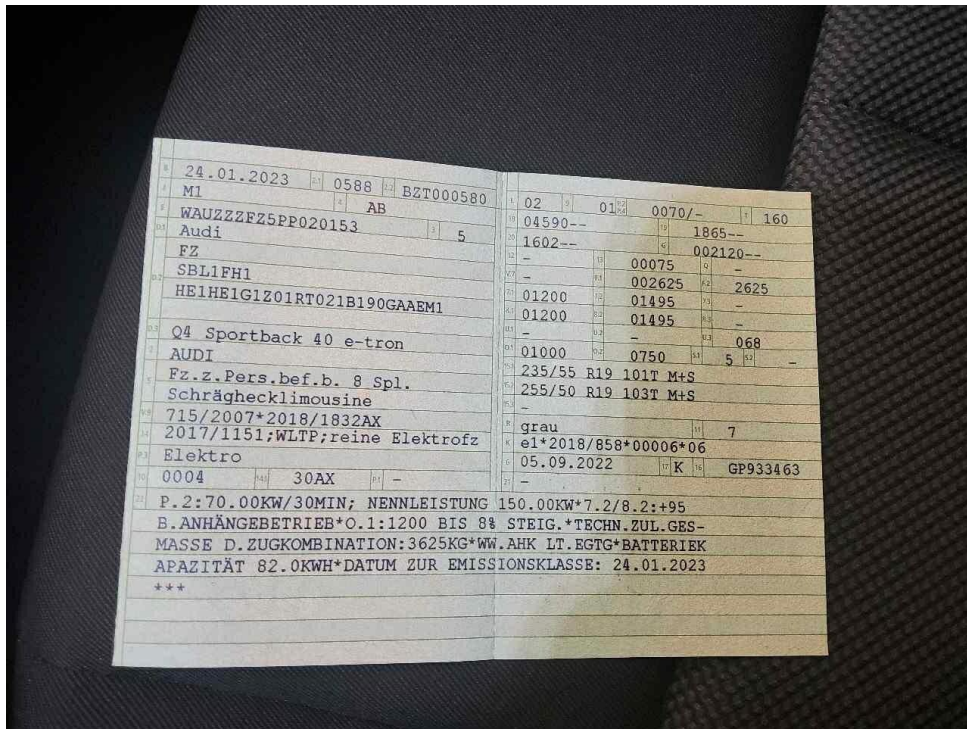 B 24.01.2023 2.1 0588 2.2 BZT000580
J M1 4 AB
E WAUZZZFZ5PP020153 3 5
D.1 Audi
FZ
D.2 SBL1FH1
HE1HE1G1Z01RT021B190GAAEM1
D.3 Q4 Sportback 40 e-tron
2 AUDI
5 Fz.z.Pers.bef.b. 8 Spl.
Schräghecklimousine
V.9 715/2007*2018/1832AX
14 2017/1151;WLTP;reine Elektrofz
P.3 Elektro
10 0004 14.1 30AX P.1 -
L 02 9 01 P.2 P.4 0070/- T 160
18 04590-- 19 1865--
20 1602-- G 002120--
12 - 13 00075 Q -
V.7 - F.1 002625 F.2 2625
7.1 01200 7.2 01495 7.3 -
8.1 01200 8.2 01495 8.3 -
U.1 - U.2 - U.3 068
O.1 01000 O.2 0750 S.1 5 S.2 -
15.1 235/55 R19 101T M+S
15.2 255/50 R19 103T M+S
15.3 -
R grau 11 7
K e1*2018/858*00006*06
6 05.09.2022 17 K 16 GP933463
21 -
22 P.2:70.00KW/30MIN; NENNLEISTUNG 150.00KW*7.2/8.2:+95
B.ANHÄNGEBETRIEB*O.1:1200 BIS 8% STEIG.*TECHN.ZUL.GES-
MASSE D.ZUGKOMBINATION:3625KG*WW.AHK LT.EGTG*BATTERIEK
APAZITÄT 82.0KWH*DATUM ZUR EMISSIONSKLASSE: 24.01.2023
***